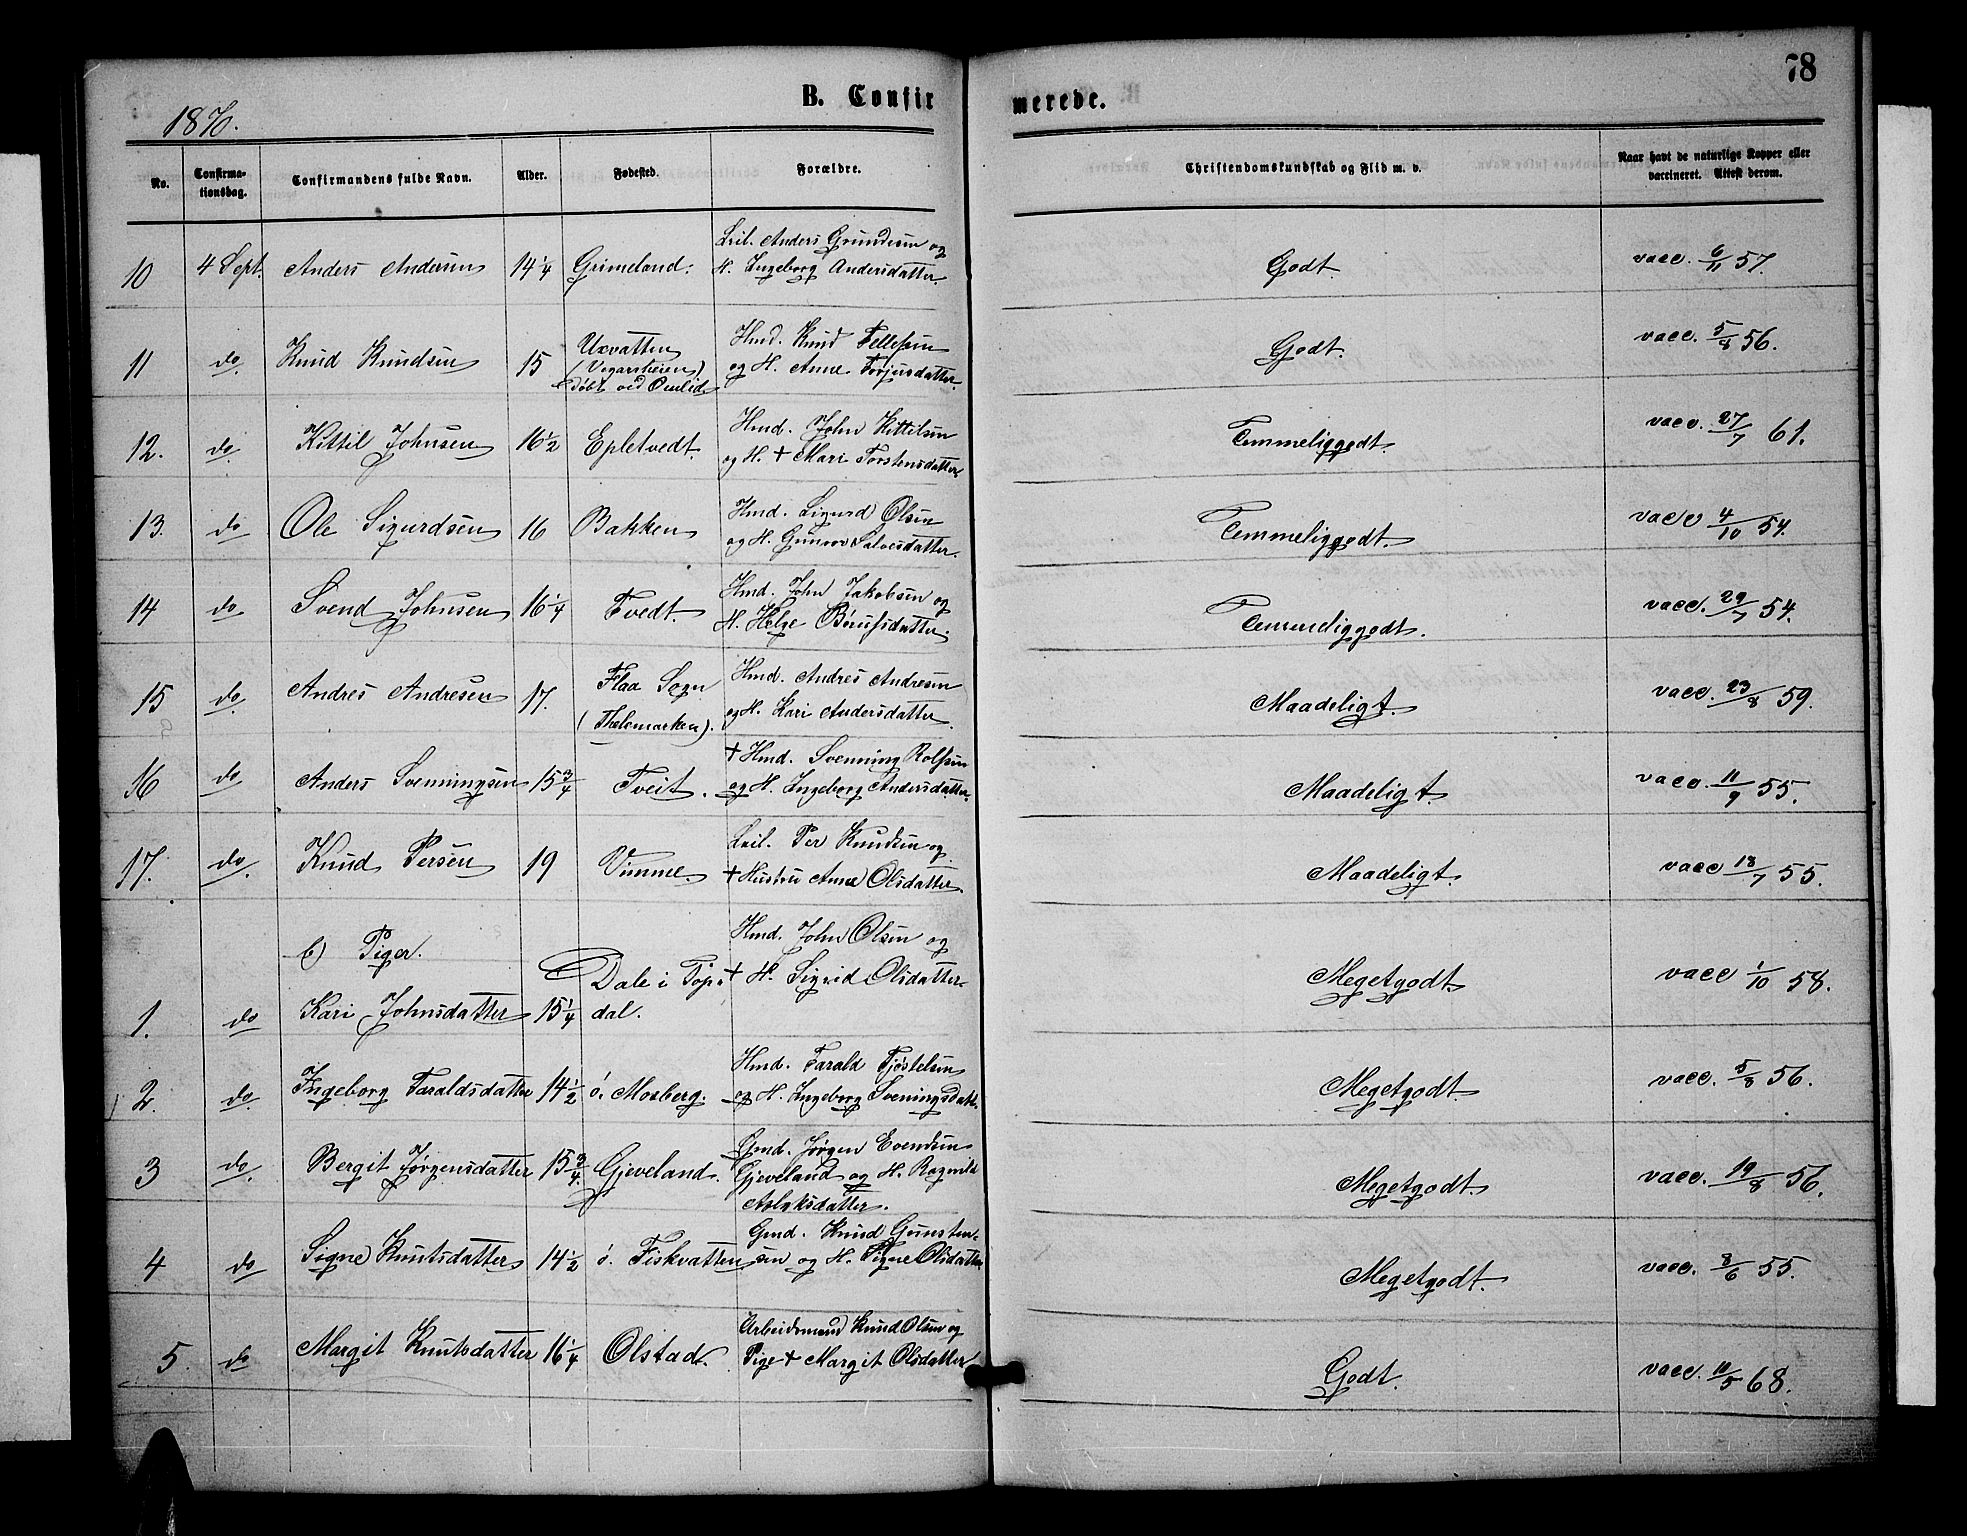 78
B. Confirmerede.
1870.
No. Confirmationsdag. Confirmandens fulde Navn. Alder. Fødested. Forældre. Christendomskundskab og Flid m. v. Naar havt de naturlige Kopper eller vaccineret. Attest derom.
Anders
10 4 Sept. Anders Andersen 14 1/4 Grimeland. og H. Ingeborg Andersdatter. Godt. vacc. 6/11 57.
Hmd. Knud Tellefsen
11 do. Knud Knudsen 15 Uxvatten og H. Anne Torjusdatter. Godt. vacc. 5/8 56.
(Vegarsheien)
døbt ved Omlid.
Hmd. John Kittilsen
12. do. Kittil Johnsen 16 1/2 Epletvedt. og H. + Mari Torstensdatter Temmeliggodt. vacc. 27/7 61.
Hmd. Sigurd Olsen
13. do Ole Sigurdsen 16 Bakken og H. Gunvor Salvesdatter. Temmeliggodt. vacc 4/10 54.
Hmd. John Jakobsen og
14 do Svend Johnsen 16 1/4 Tvedt. H. Helge Temmeliggodt. vacc. 29/7 54.
Hmd. Andres Andresen
15 do. Andres Andresen 17. Flaa Sogn og H. Kari Andersdatter. Maadeligt. vacc. 23/8 59.
(Thelemarken).
+ Hmd. Svenning Rolfsen
16 do Anders Svenningsen 15 3/4 Tveit. og H. Ingeborg Andersdatter. Maadeligt. vacc. 11/9 55.
Per Knudsen og
17. do. Knud Persen 19 Vimme. + Hustru Anne Olsdatter. Maadeligt. vacc 18/7 55.
b) Piger.
Hmd. John Olsen og
Dale i Top- + H. Sigrid Olsdatter.
1. do Kari Johnsdatter 15 1/4 dal. Megetgodt. vacc 1/10 58.
Hmd. Tarald Tjøstelsen
2. do. Ingeborg Taraldsdatter 14 1/2 ø. Mosberg. og H. Ingeborg Sveningsdatt. Megetgodt. vacc. 5/8 56.
Gmd. Jørgen Evendsen
3 do. Bergit Jørgensdatter 15 3/4. Gjeveland. Gjeveland og H. Ragnild Megetgodt. vacc. 19/8 56.
Aslaksdatter.
Gmd. Knud Gunsten-
4 do Signe Knutsdatter 14 1/2 ø. Fiskvatten sen og H. Signe Olsdatter Megetgodt. vacc. 8/6 55.
Arbeidsmand Knud Olsen og
5. do Margit Knutsdatter 16 1/4 Olstad. Pige + Margit Olsdatter Godt. vacc. 10/5 68.